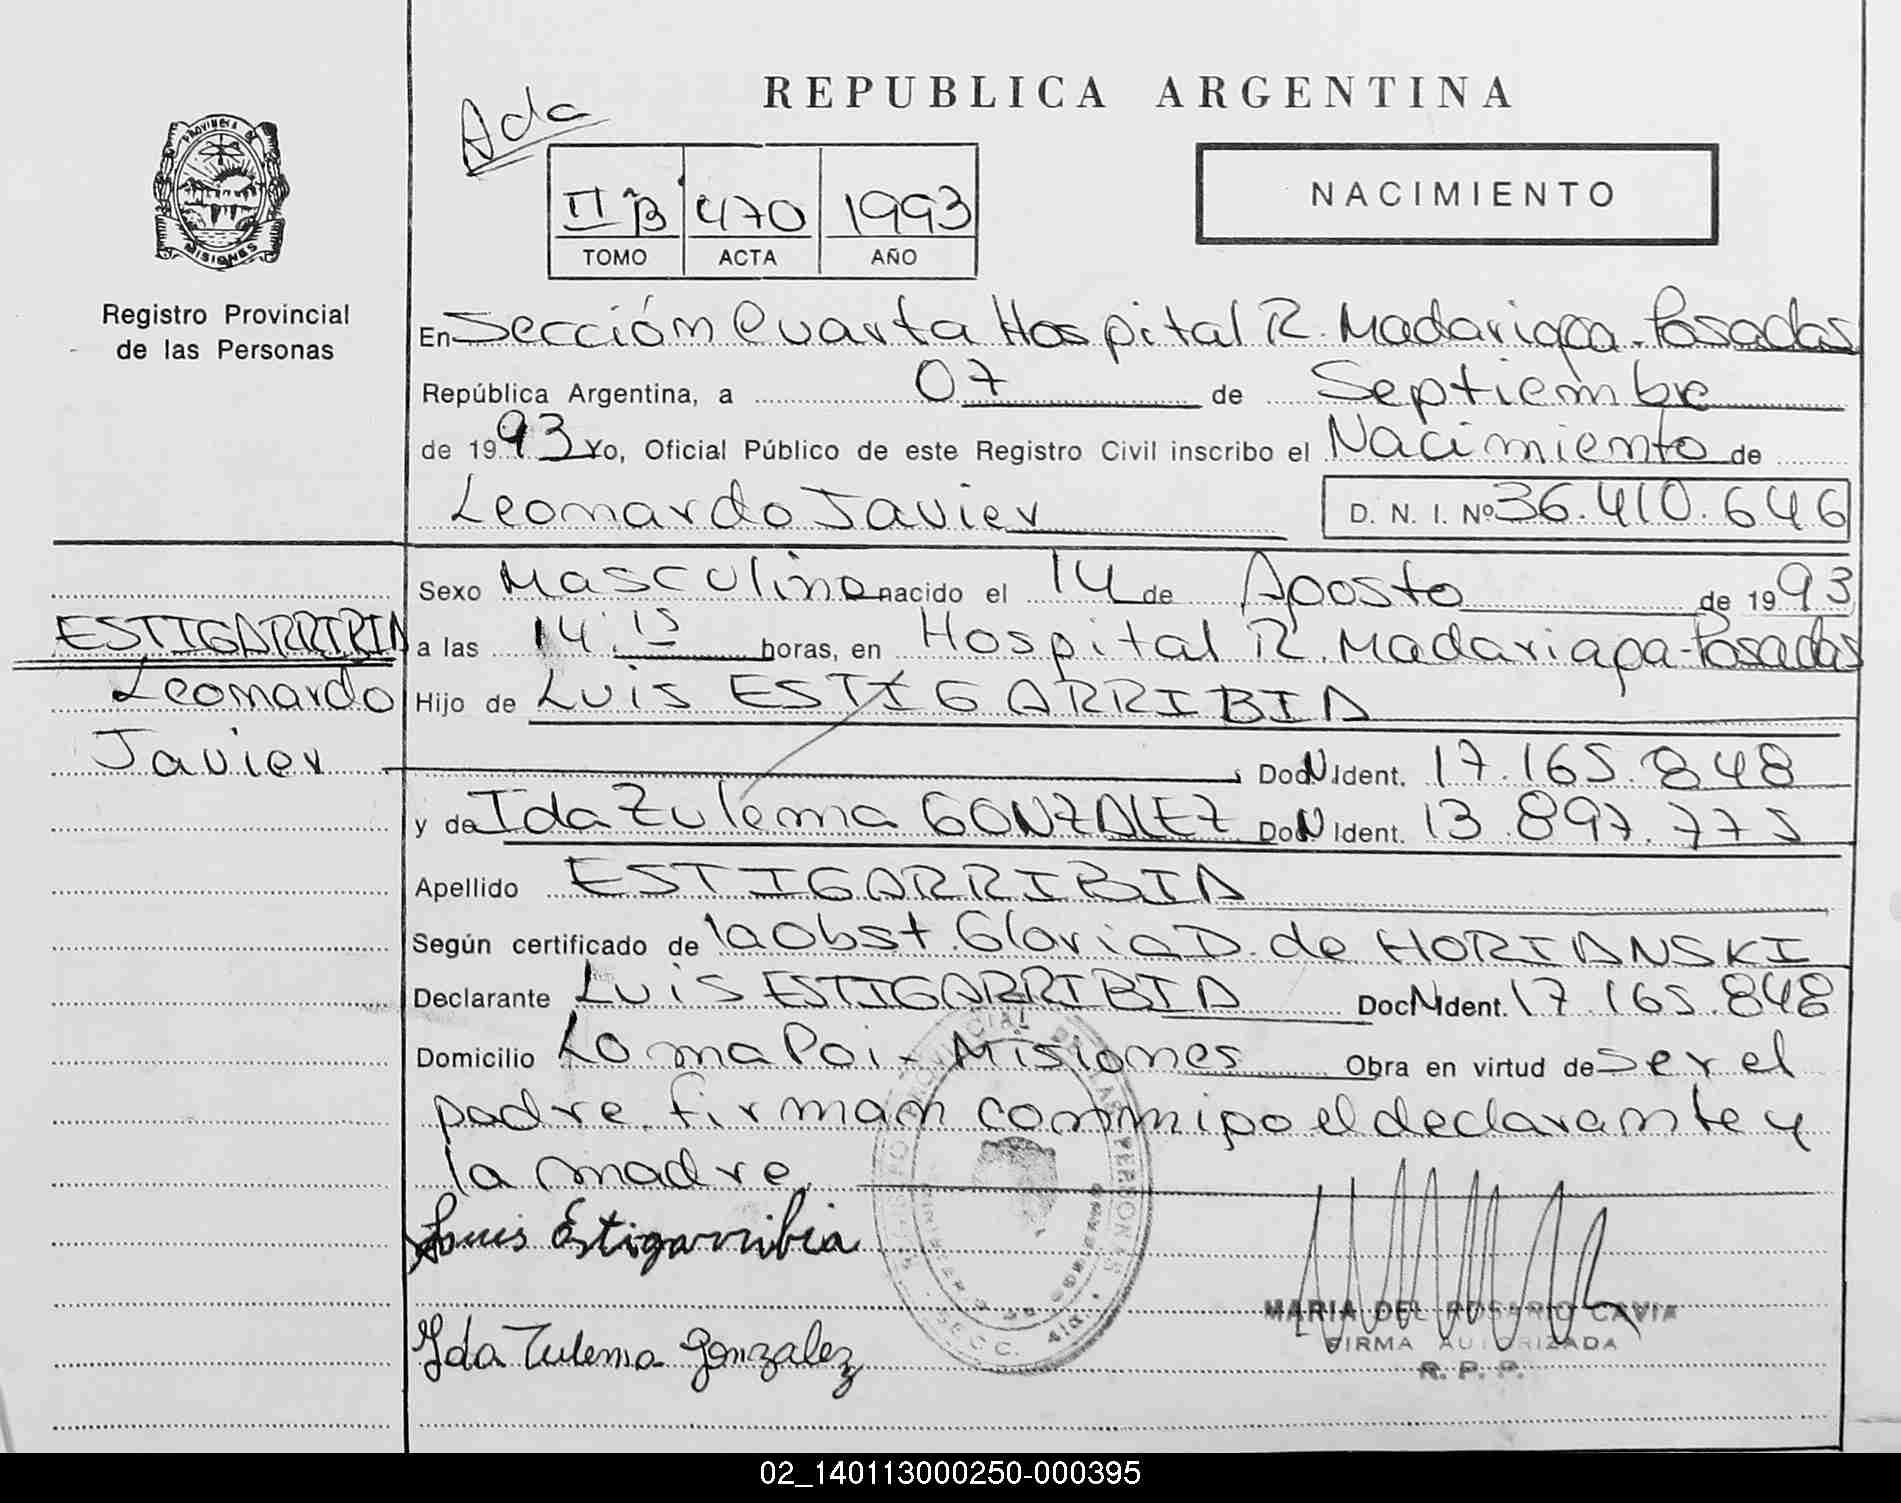 REPUBLICA ARGENTINA
Ada
PROVINCIA DE MISIONES
II B 470 1993
TOMO ACTA AÑO
NACIMIENTO
Registro Provincial
de las Personas
En Sección Cuarta Hospital R. Madariaga - Posadas
República Argentina, a 07 de Septiembre
de 1993 Yo, Oficial Público de este Registro Civil inscribo el Nacimiento de
Leonardo Javier D. N. I. Nº 36.410.646
ESTIGARRIBIA
Leonardo
Javier
Sexo Masculino nacido el 14 de Agosto de 1993
a las 14.15 horas, en Hospital R. Madariaga - Posadas
Hijo de Luis ESTIGARRIBIA
Doc. N. Ident. 17.165.848
y de Ida Zulema GONZALEZ Doc. N. Ident. 13.897.775
Apellido ESTIGARRIBIA
Según certificado de la Obst. Gloria D. de HORIANSKI
Declarante Luis ESTIGARRIBIA Doc. N. Ident. 17.165.848
Domicilio Loma Poi - Misiones Obra en virtud de ser el
padre. firman conmigo el declarante y
la madre.
Luis Estigarribia
Ida Zulema Gonzalez
MARIA DEL ROSARIO CAVIA
FIRMA AUTORIZADA
R. P. P.
02_140113000250-000395